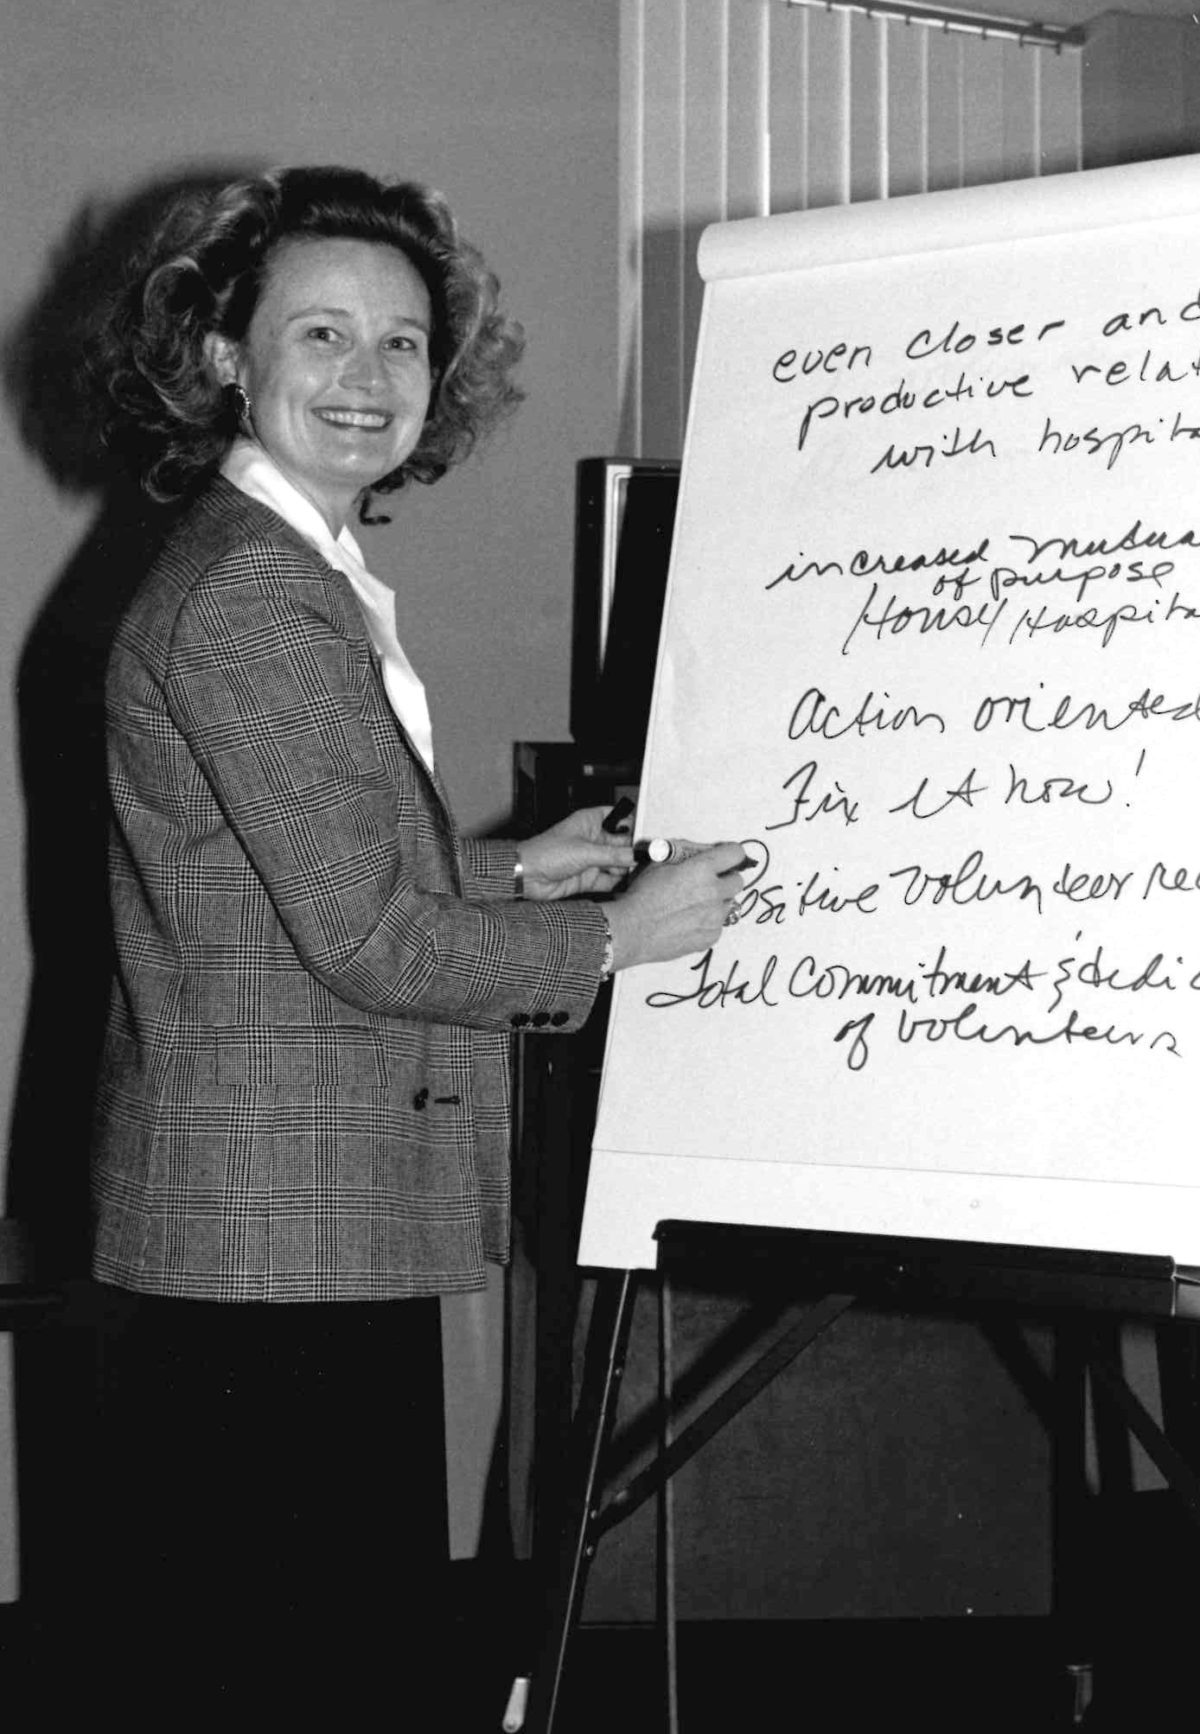 even closer and
productive relat
with hospita
increased mutua
of purpose
House/Hospita
Action oriented
Fix it now!
ositive volunteer rec
Total Commitment & dedic
of volunteers